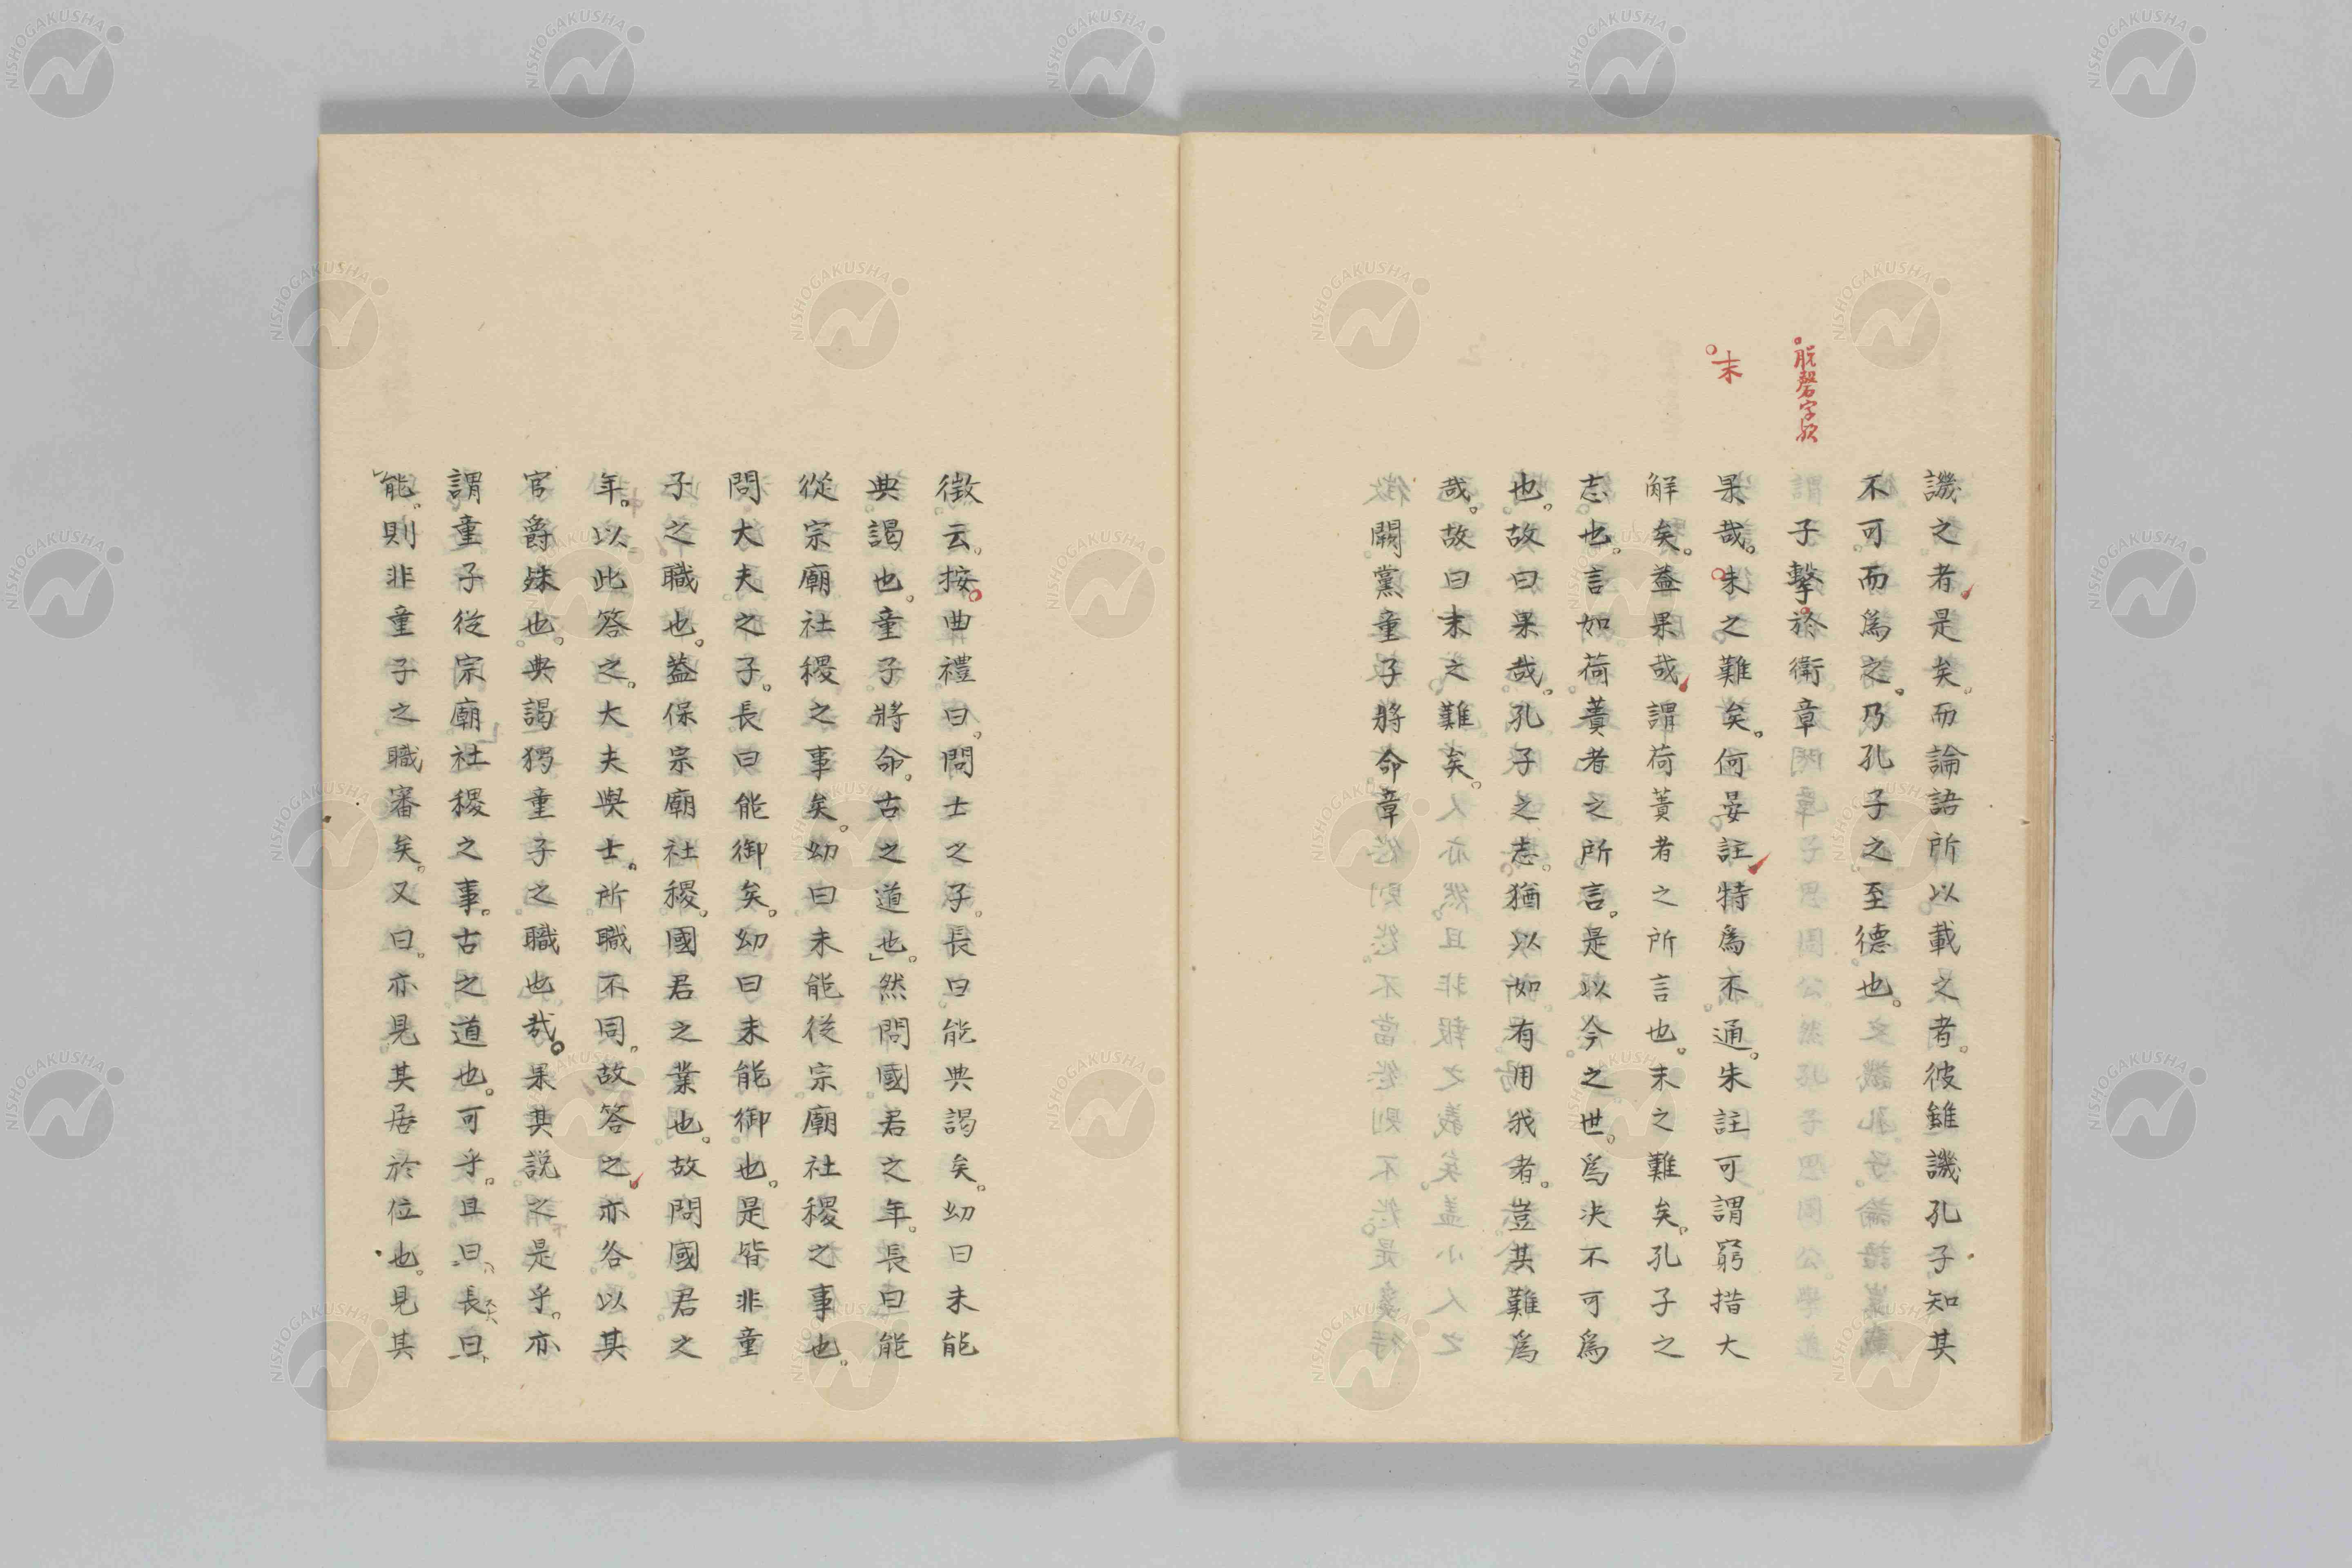 譏之者是矣。而論語所以載之者。彼雖譏孔子知其
不可。而爲之。乃孔子之至德也。
脱磬字歟
子擊於衛章
末
果哉。末之難矣。何晏註特爲不通。朱註可謂窮措大
解矣。蓋果哉謂荷蕢者之所言也。末之難矣。孔子之
志也。言如荷蕢者之所言。是以今之世。爲決不可爲
也。故曰果哉。孔子之志。猶以如有用我者。豈其難爲
哉。故曰末之難矣。
闕黨童子將命章
徵云。按。曲禮曰。問士之子。長曰能典謁矣。幼曰未能
典謁也。童子將命。古之道也。」然問國君之年。長曰能
從宗廟社稷之事矣。幼曰未能從宗廟社稷之事也。
問大夫之子。長曰能御矣。幼曰未能御也。是皆非童
子之職也。蓋保宗廟社稷。國君之業也。故問國君之
年。以此答之。大夫與士。所職不同。故答之亦各以其
官爵殊也。典謁獨童子之職也哉。果其説之是乎。亦
謂童子從宗廟社稷之事。古之道也。可乎。且曰、長曰、
「能。則非童子之職審矣。又曰。亦見其居於位也。見其
NISHOGAKUSHA